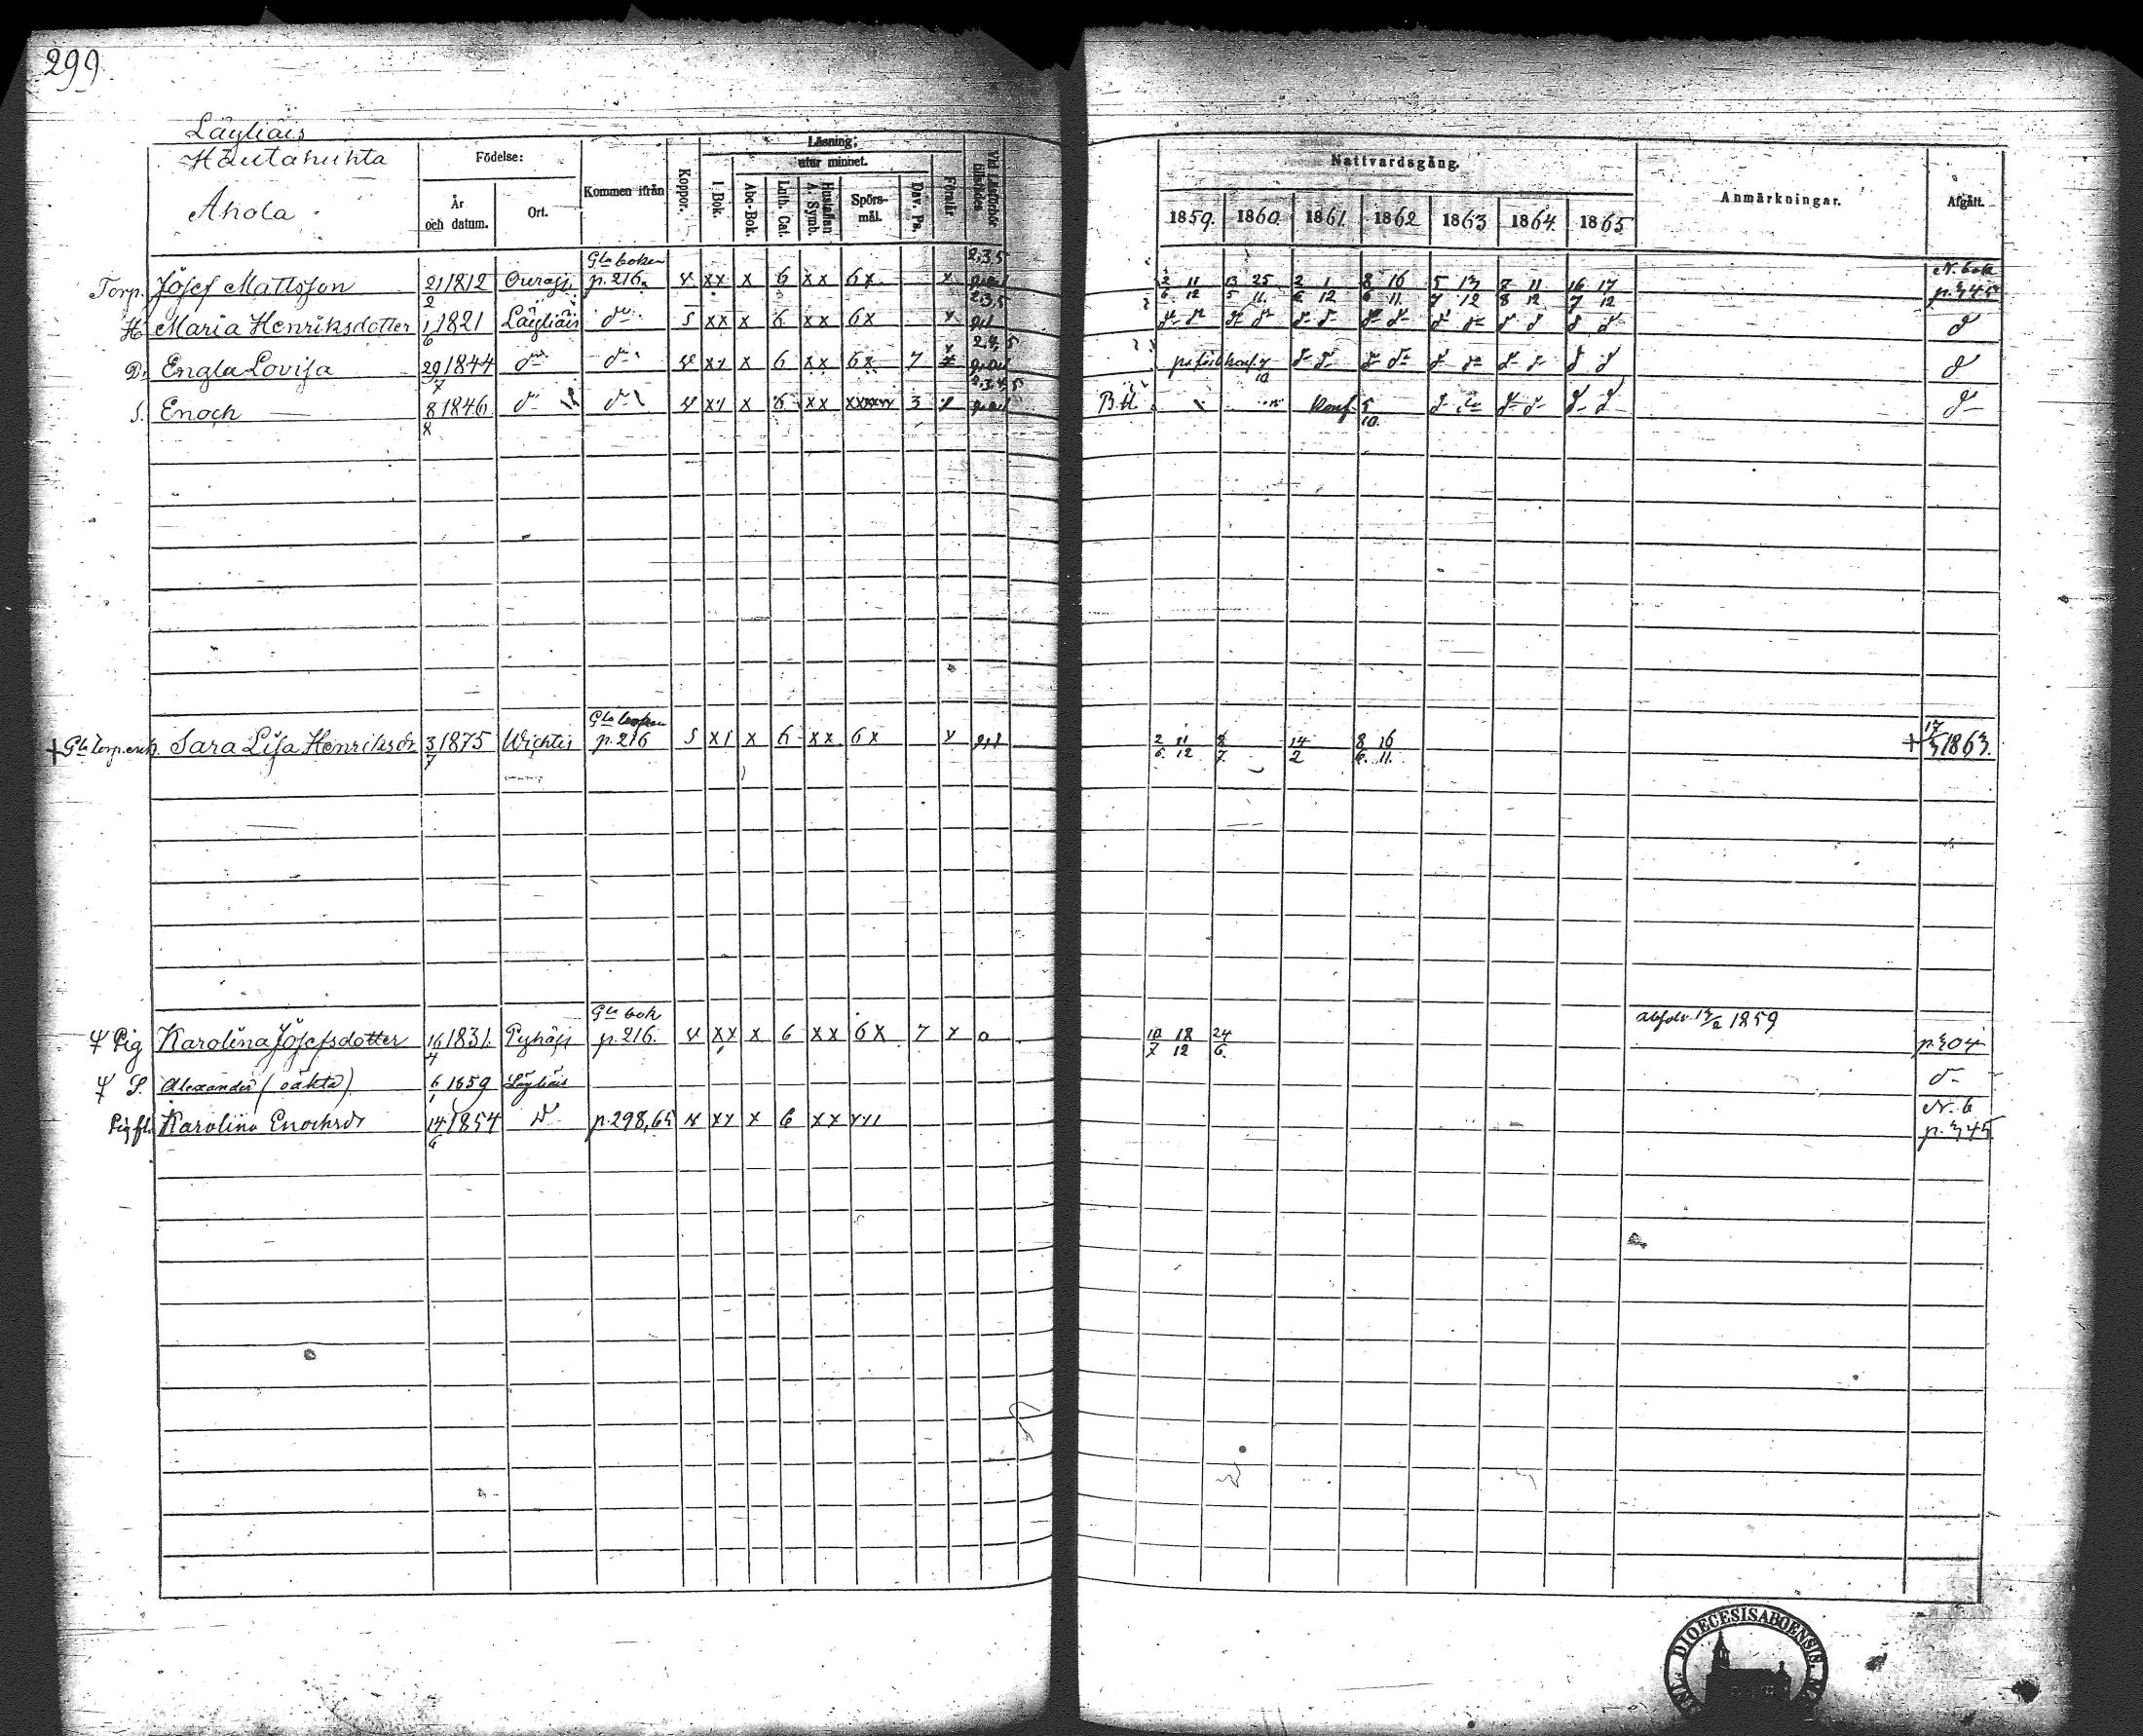 299
Läyliäis
Hautahuhta
Ahola
Födelse:
År och datum.
Ort.
Kommen ifrån
Koppor.
Läsning;
I Bok.
utur minnet.
Abc-Bok.
Luth. Cat.
Hustaflan A. Symb.
Spörs-mål.
Dav. Ps.
Förstår
Nattvardsgång.
1859. 1860. 1861. 1862 1863 1864. 1865
Anmärkningar.
Afgått.
Gla boken 2,3,5 N. bok
Torp. Josef Mattsson 21/2 1812 p. 216. v xx x 6 xx 6x x 2/6 11/12 13/5 25/11. 2/6 1/12 8/6 16/11. 5/7 13/12 7/8 11/12 16/7 17/12 p. 345
2,3,5
H. Maria Henriksdotter 1/6 1821 Läyliäis do s xx x 6 xx 6x x
2,4,5
D. Engla Lovisa 29/7 1844 do do v xx x 6 xx 6x 7 x
2,3,4,5
S. Enoch 8/8 1846 do do v xx x 6 xx xxxxx 3 Konf. 5/10.
Gla boken
+ Gla Torp.enk. Sara Lisa Henriksdr 3/7 1875 Wichtis p. 216 s x1 x 6 xx 6x x 2/6. 11/12 8/7. 14/2 8/6. 16/11. + 17/3 1863.
Gla bok 1859
Pig Karolina Josefsdotter 16/4 1831. Pyhäjä p. 216. v xx x 6 xx 6x 7 x o 10/7 18/12 24/6. p. 304
S. Alexander (oäkta) 6/1 1859 Läyliäis
N. b
Pig fl. Karolina Enochsdr 14/6 1854 p. 298,65 v xx x 6 xx p. 345
DIOECESIS ABOENSIS